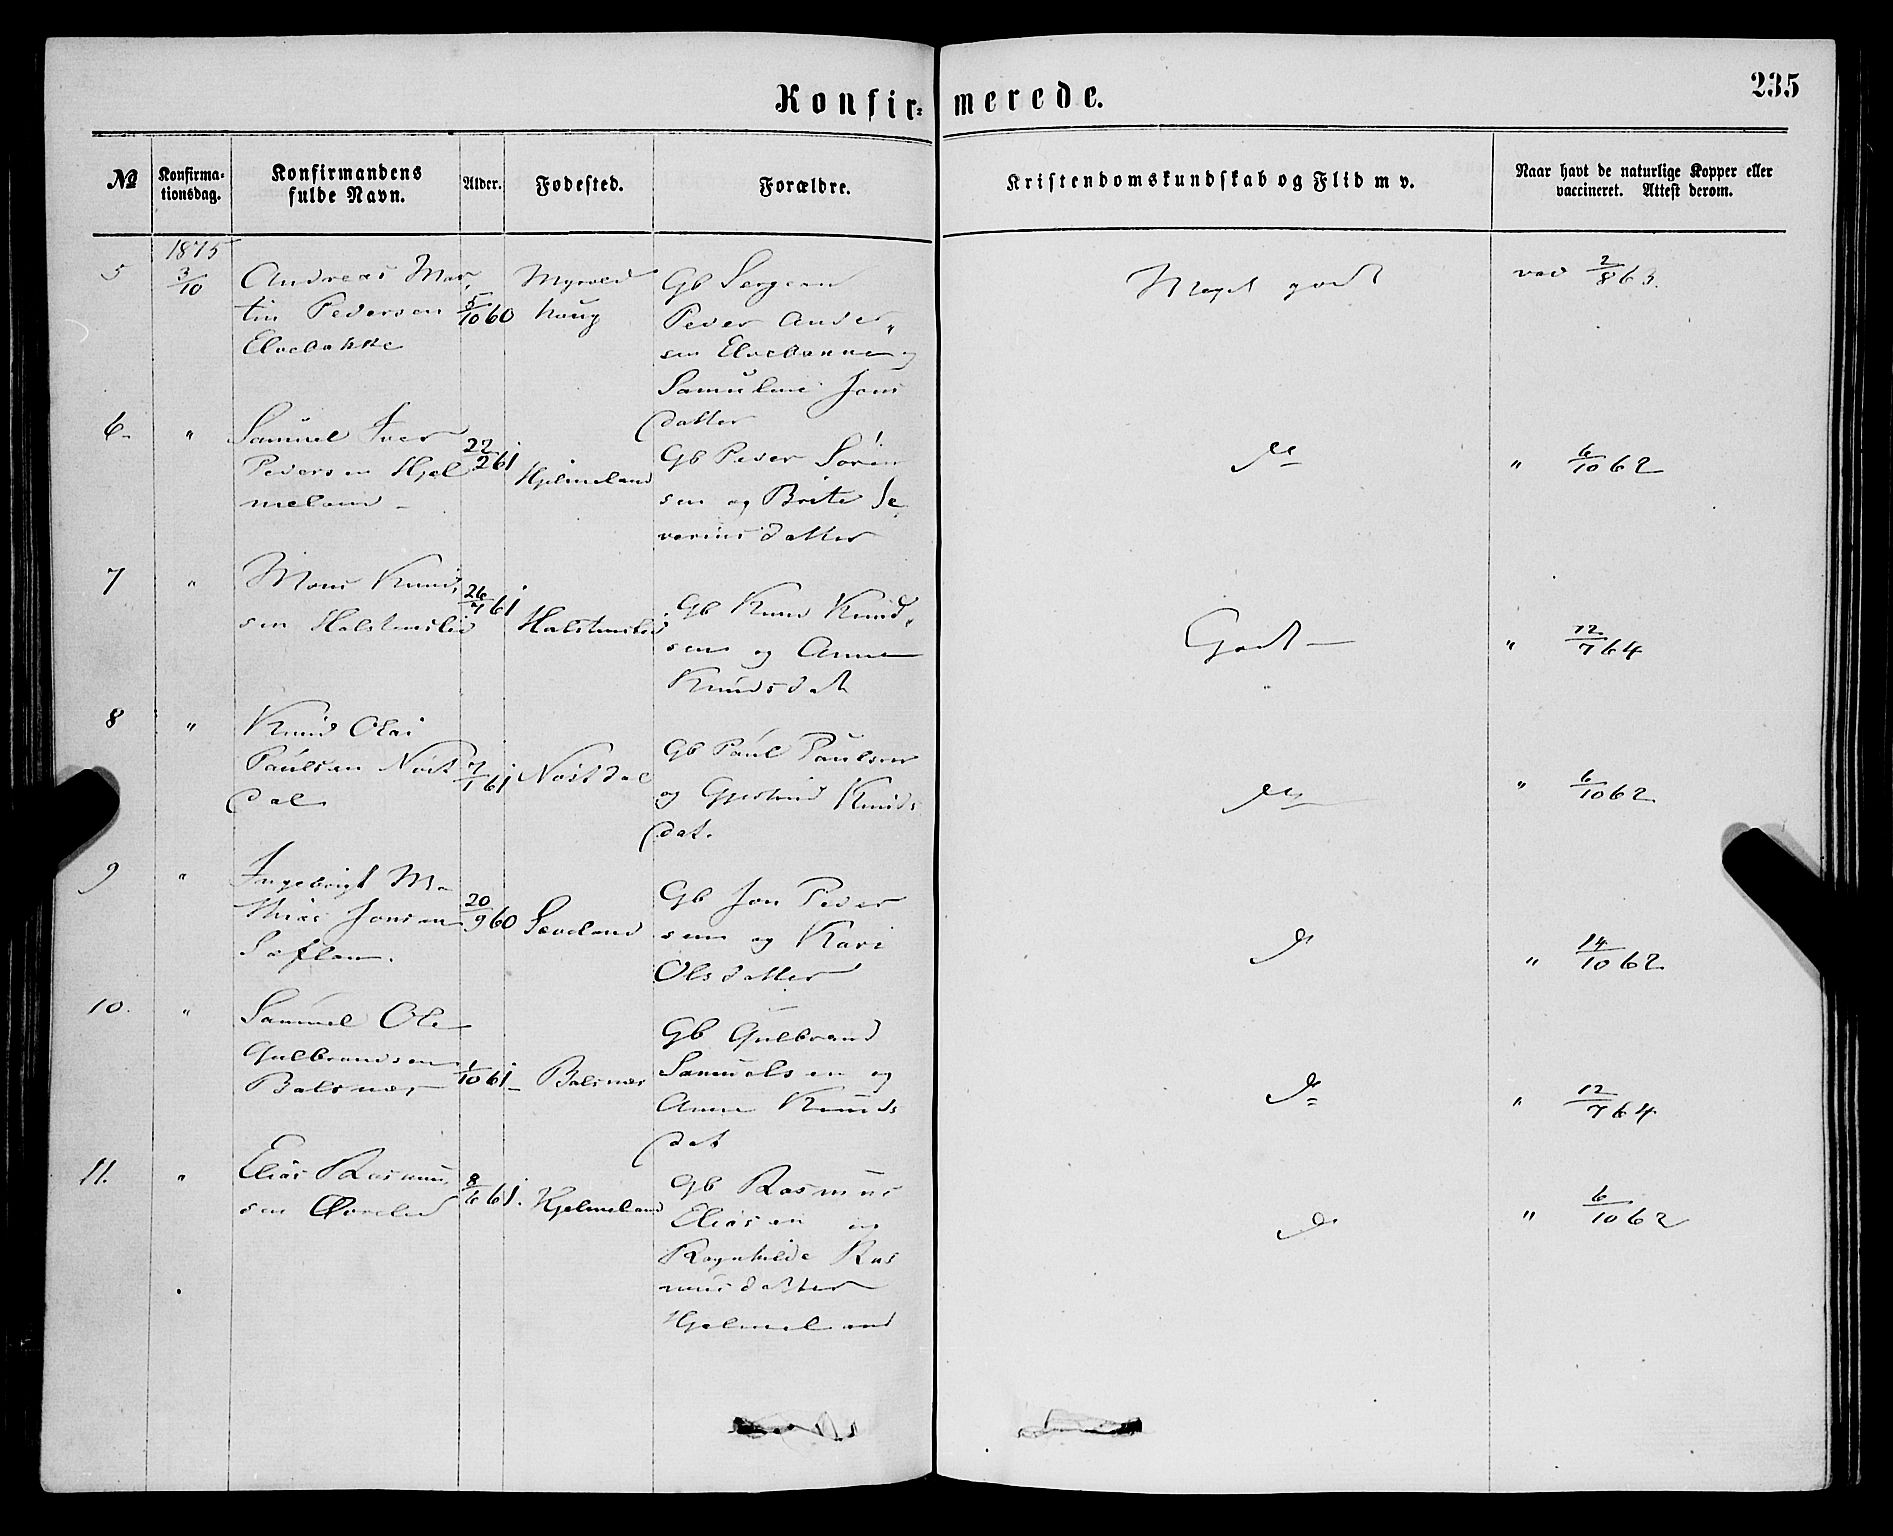 Konfirmerede.
235
№
Konfirma-
tionsdag.
Konfirmandens
fulde Navn.
Alder.
Fødested.
Forældre.
Kristendomskundskab og Flid m v.
Naar havt de naturlige Kopper eller
vaccineret. Attest derom.
1875
5
3/10
Andreas Mar
tin Pedersen
Elvebakke
5/10 60
Myrvold
haug
Gb Sergean
Peder Ander„
sen Elvebakke og
Samuline Jons
datter
Meget godt
vac 2/8 63.
6.
"
Samuel Iver
Pedersen Hjel
meland
22/2 61
Hjelmeland
Gb Peder Sørin
sen og Brite Se
verinsdatter
do
" 6/10 62
7
"
Mons Knud,
sen Halstenslid
26/7 61
Halstenslid
Gb Knud Knud„
sen og Anna
Knudsdat
Godt
" 12/7 64
8
"
Knud Olai
Paulsen Nost
dal
7/1 61
Nostdal
Gb Paul Paulsen
og Gjertrud Knuds
dat.
do
" 6/10 62
9
"
Ingebrigt Ma
thias Jonsen
20/9 60
Sæveland
Gb Jon Peder
sen og Kari
Olsdatter
do
" 14/10 62
10.
"
Samuel Ole
Gulbrandsen
Balsnæs
1/10 61
Balsnæs
Gb Gulbrand
Samuelsen og
Anne Knuds
dat
do
" 12/7 64
11.
"
Elias Rasmus,
sen Øvrelid
8/6 61.
Hjelmeland
Gb Rasmus
Eliasen og
Ragnhilde Ras
musdatter
Hjelmeland
do
" 6/10 62